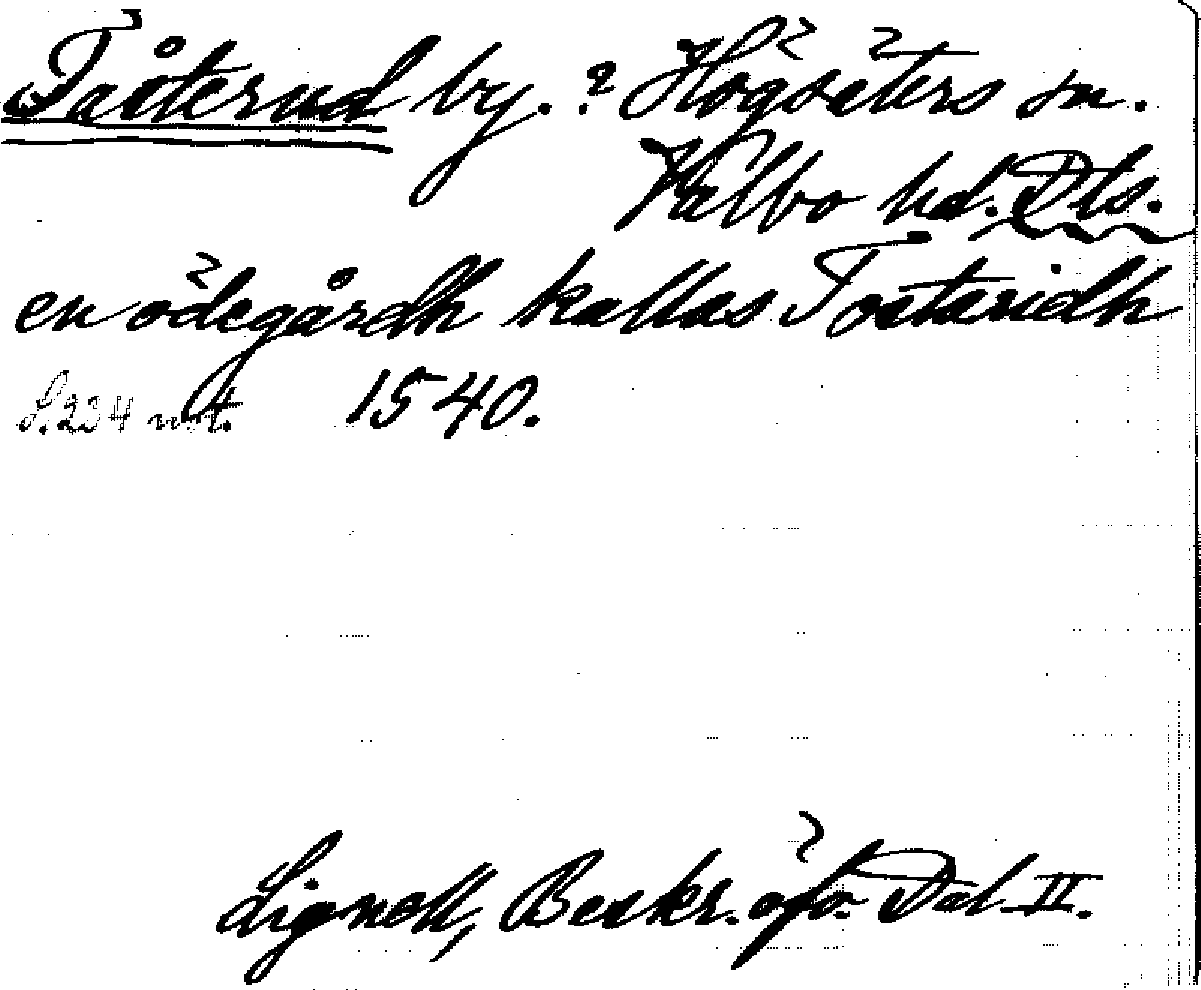 Tåsterud by. ? Högsäters sn.
Valbo hd. Dls.
en ödegårdh kallas Tostaridh
S. 234 not. 1540.
Lignell, Beskr. öfv. Dal II.